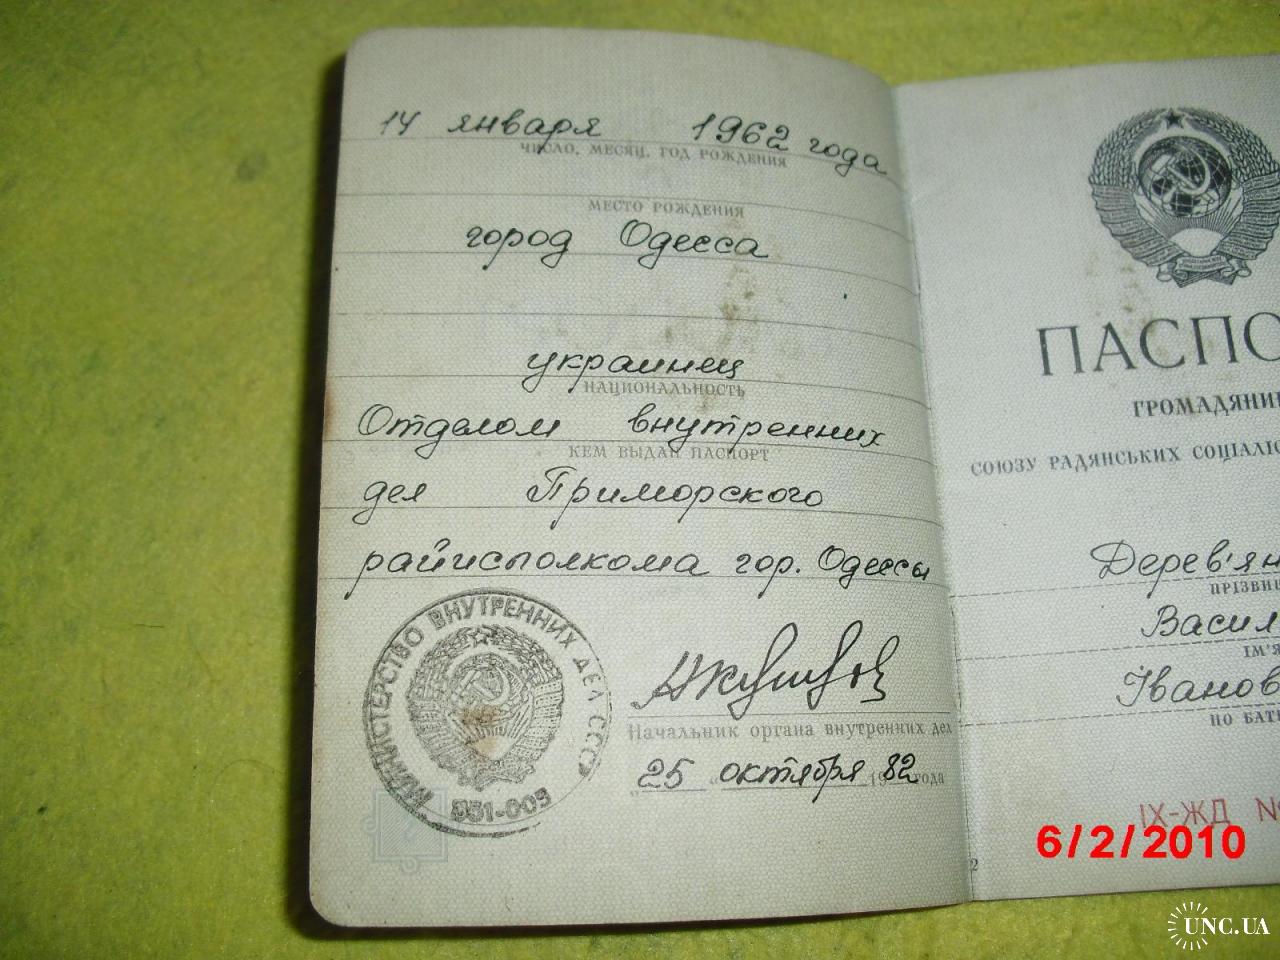 14 января 1962 года
ЧИСЛО, МЕСЯЦ, ГОД РОЖДЕНИЯ
МЕСТО РОЖДЕНИЯ
город Одесса
украинец
НАЦИОНАЛЬНОСТЬ
Отделом внутренних
КЕМ ВЫДАН ПАСПОРТ
дел Приморского
райисполкома гор. Одессы
МИНИСТЕРСТВО ВНУТРЕННИХ ДЕЛ СССР
Начальник органа внутренних дел
„25 октября 1982 года
2
ПАСПО
ГРОМАДЯНИН
СОЮЗУ РАДЯНСЬКИХ СОЦІАЛІС
Дерев'ян
ПРІЗВИЩ
Васил
ІМ'Я
Іванов
ПО БАТЬ
IX-ЖД №
6/2/2010
UNC.UA